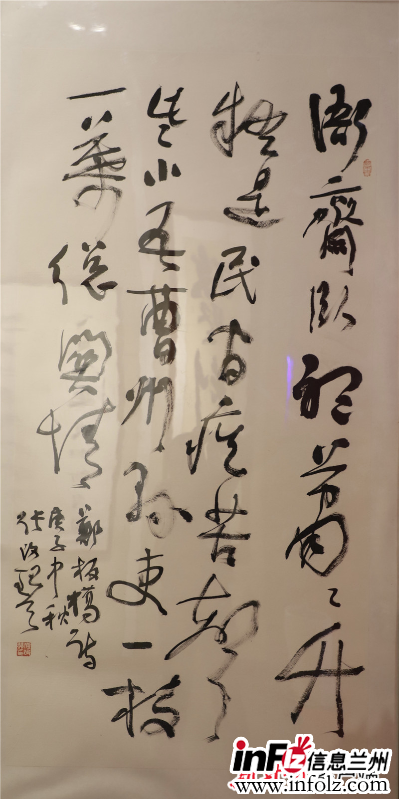 衙齋臥聽蕭〻竹
疑是民間疾苦聲
些小吾曹州縣吏一枝
一葉總關情
鄭板橋詩
庚子中秋
張改琴
inFLZ 信息兰州
www.infolz.com